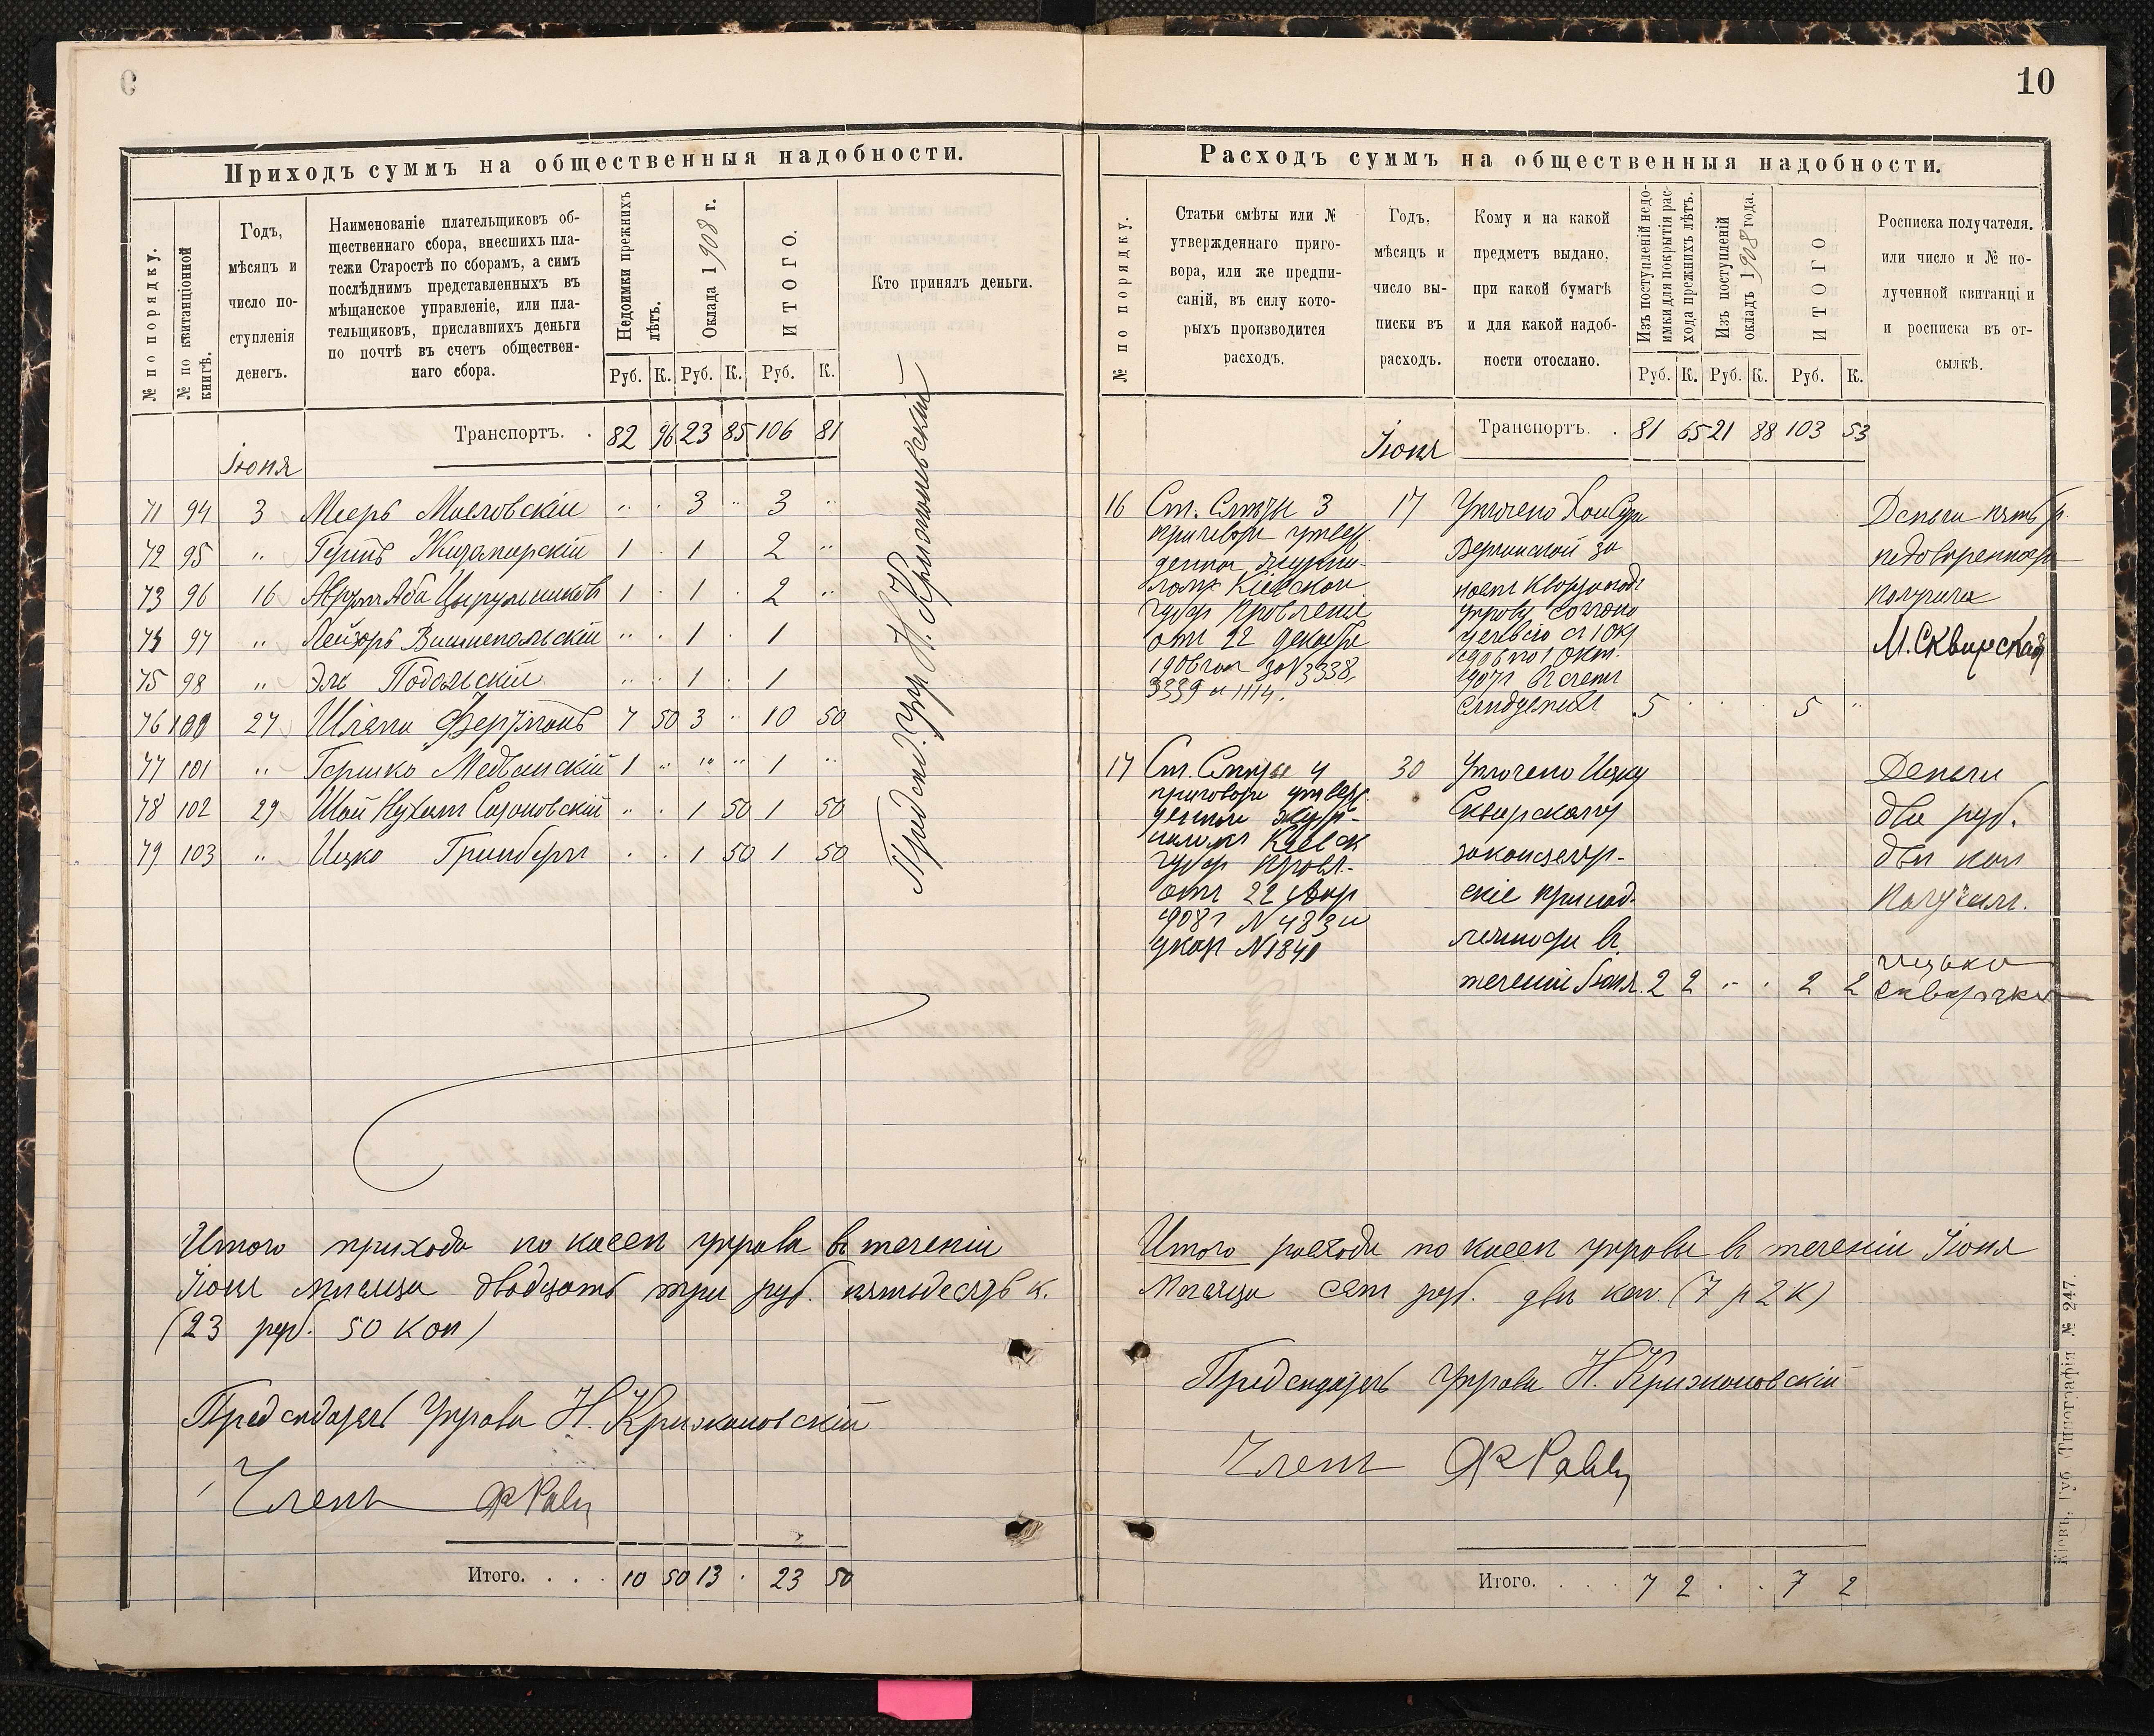 10
Приходъ суммъ на общественныя надобности.
№ по порядку.
№ по квитанціонной книгѣ.
Годъ,
мѣсяцъ и
число по-
ступленія
денегъ.
Наименованіе плательщиковъ об-
щественнаго сбора, внесшихъ пла-
тежи Старостѣ по сборамъ, а симъ
послѣднимъ представленныхъ въ
мѣщанское управленіе, или пла-
тельщиковъ, приславшихъ деньги
по почтѣ въ счетъ обществен-
наго сбора.
Недоимки прежнихъ лѣтъ.
Оклада 1908 г.
ИТОГО.
Кто принялъ деньги.
Руб. К. Руб. К. Руб. К.
Транспортъ. . 82 96 23 85 106 81
Іюня
71 94 3 Мееръ Масловскій " . 3 " 3 "
72 95 " 1 . 1 2 "
73 96 16 1 . 1 . 2 "
74 97 " Лейзоръ Вишнепольскій " . 1 . 1
75 98 " Эль Подольскій " . 1 . 1
76 100 27 7 50 3 " 10 50
77 101 " Гершко Медвинскій 1 " " " 1 "
78 102 29 Шай Нухим " . 1 50 1 50
79 103 " Ицко Гринбергъ . . 1 50 1 50
Предсѣд. Упр. Н. Крижановскій
Итого прихода по кассѣ управы въ теченіи
Іюня мѣсяца двадцать три руб. пятьдесятъ к.
(23 руб. 50 коп)
Предсѣдатель Управы Н. Крижановскій
Членъ
Итого. . . . 10 50 13 . 23 50
Расходъ суммъ на общественныя надобности.
№ по порядку.
Статьи смѣты или №
утвержденнаго приго-
вора, или же предпи-
саній, въ силу кото-
рыхъ производится
расходъ.
Годъ,
мѣсяцъ и
число вы-
писки въ
расходъ.
Кому и на какой
предметъ выдано,
при какой бумагѣ
и для какой надоб-
ности отослано.
Изъ поступленій недо-
имки для покрытія рас-
хода прежнихъ лѣтъ.
Изъ поступленій
окладъ 1908 года.
ИТОГО
Росписка получателя.
или число и № по-
лученной квитанціи
и росписка въ от-
сылкѣ.
Руб. К. Руб. К. Руб. К.
Іюня Транспортъ. . 81 65 21 88 103 53
16 Ст. Смѣты 3 17 Уплочено Деньги пять р.
приговора утвер.
за
Кіевскою получила
Губер Правленія управу
отъ 22 декабря М. Сквирская
1906 года за N 3338, 1906 по 1 Окт.
3339 и 1114. 1907 г. въ счетъ
5 . . . 5 "
17 Ст. Смѣты 4 30 Уплочено Ицку Деньги
приговора утвер. Сквирскому два руб.
за канцеляр- двѣ коп
Губер Правл. скіе принад- Получилъ.
отъ 22
1908 г N 483 и лежности въ
указ N 1841 Ицько
теченіи Іюня. 2 2 " . 2 2
Итого расхода по кассѣ управы въ теченіи Іюня
Мѣсяца семь руб. двѣ коп. (7 р 2 к)
Предсѣдатель Управы Н. Крижановскій
Членъ
Итого. . . . 7 2 . . 7 2
Кіевъ, Губ. Типографія № 247.